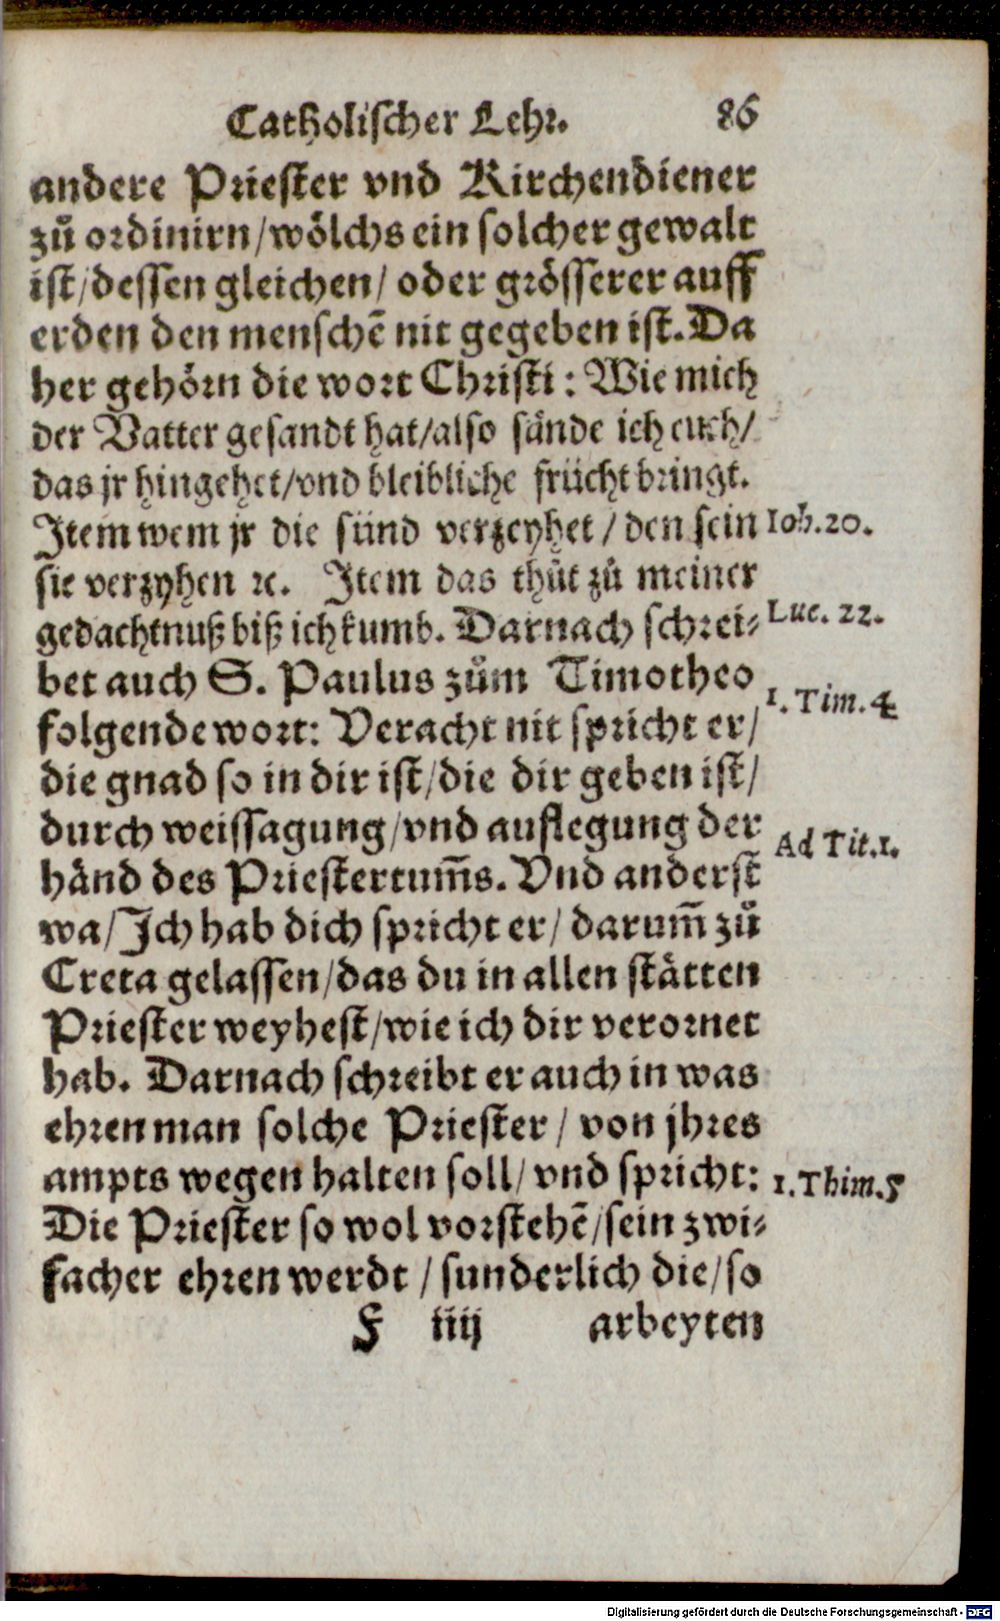 Catholischer Lehr. 86
andere Priester vnd Kirchendiener
zů ordinirn/wölchs ein solcher gewalt
ist/dessen gleichen/ oder grösserer auff
erden den menschẽ nit gegeben ist. Da
her gehörn die wort Christi: Wie mich
der Vatter gesandt hat/also sände ich euch/
das jr hingehet/vnd bleibliche frücht bringt.
Item wem jr die sünd verzeyhet / den sein Ioh.20.
sie verzyhen ꝛc. Item das thůt zů meiner
gedachtnuß biß ich kumb. Darnach schrei- Luc. 22.
bet auch S. Paulus zům Timotheo
folgende wort: Veracht nit spricht er/ 1. Tim.4
die gnad so in dir ist/die dir geben ist/
durch weissagung/vnd auflegung der Ad Tit.1.
händ des Priestertum̃s. Vnd anderst
wa/Ich hab dich spricht er/ darum̃ zů
Creta gelassen/das du in allen stätten
Priester weyhest/wie ich dir verornet
hab. Darnach schreibt er auch in was
ehren man solche Priester / von jhres
ampts wegen halten soll/ vnd spricht: 1.Thim.5
Die Priester so wol vorstehẽ/sein zwi-
facher ehren werdt / sunderlich die/so
F iiij arbeyten
Digitalisierung gefördert durch die Deutsche Forschungsgemeinschaft - DFG